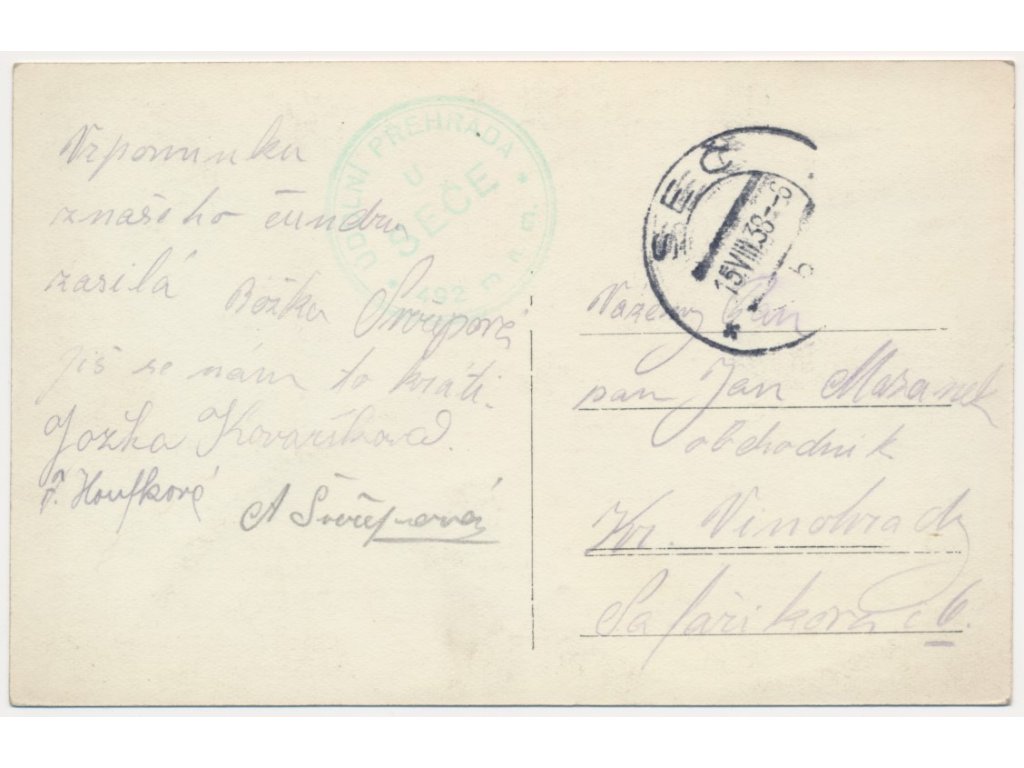 Vzpomínku
z našeho čundru
zasílá Božka Svčepová
Již se nám to krátí.
Jožka Kovaříková.
F. Houfková
A Svčepová
ÚDOLNÍ PŘEHRADA * Ú N M * 492
U
SEČE
SEČ
15.VIII.38-8
b
* *
Vážený Pan
pan Jan Mazanek
obchodník
Kr. Vinohrady
Šafaříková č 6.